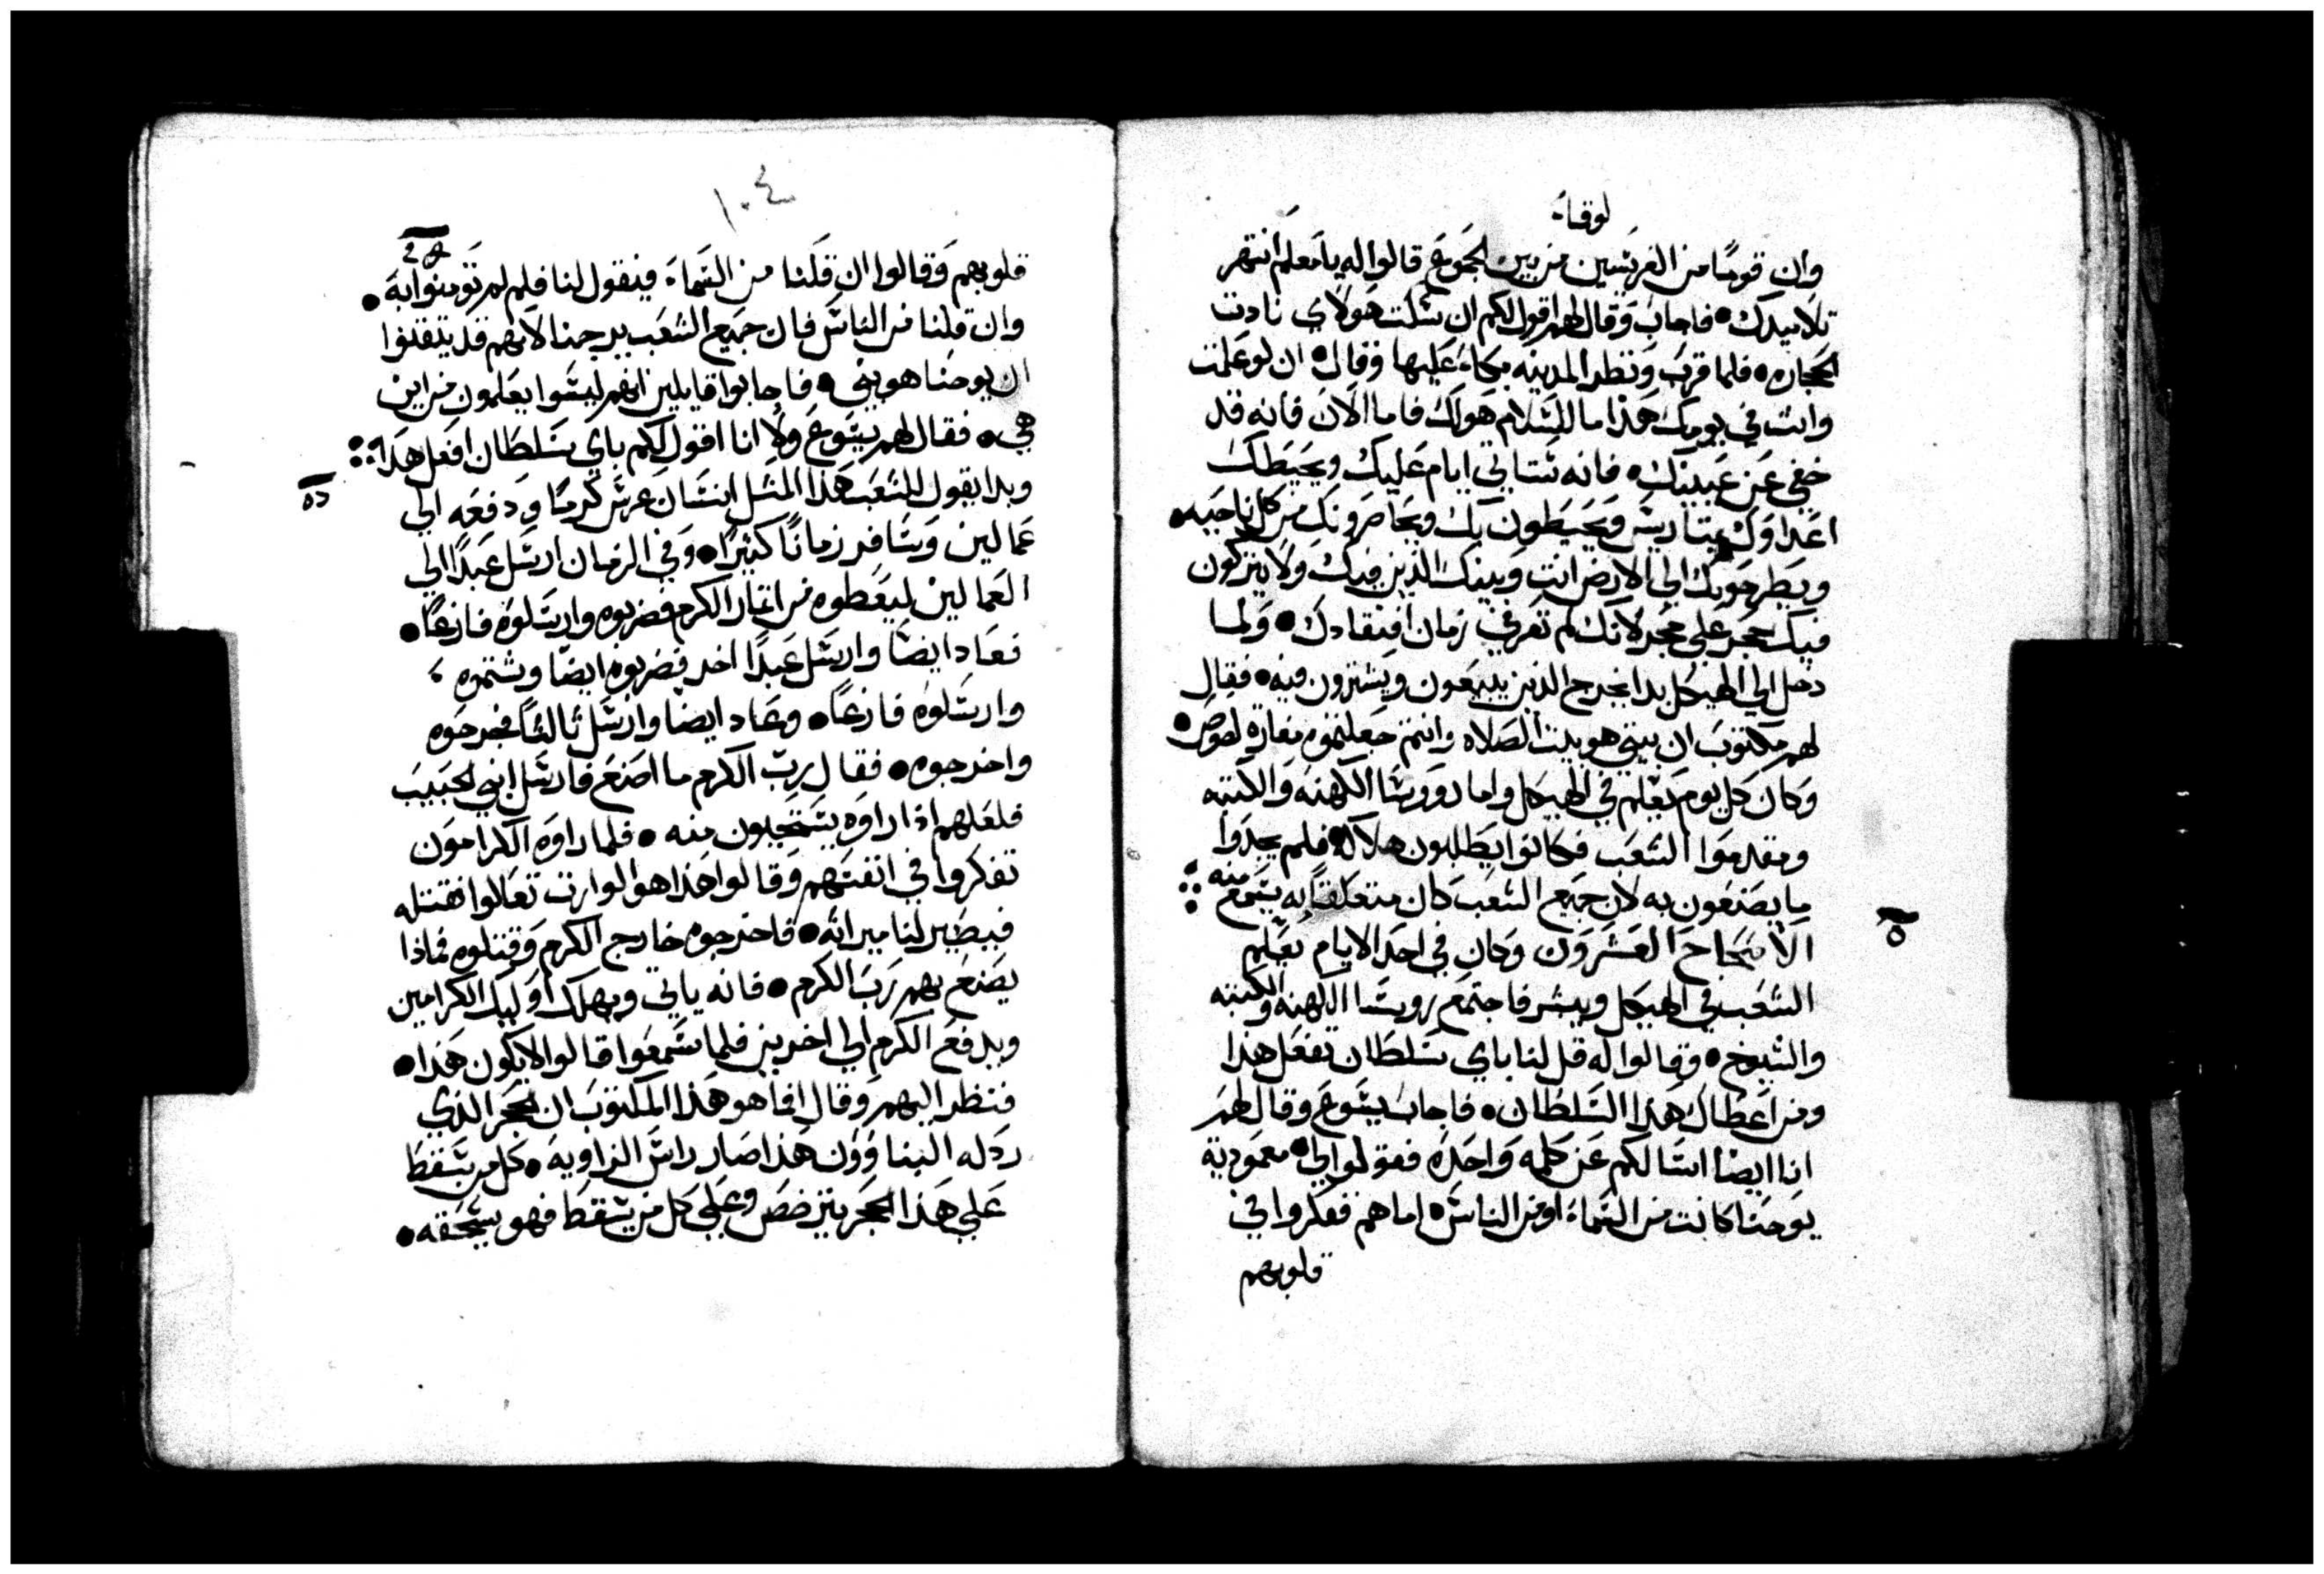 لوقا
وان قوما من الفريسين من بين الجموع قالوا له يا معلم انتهر
تلاميدك فاجاب وقال لهم اقول لكم ان سكت هولاي نادت
الحجاره فلما قرب ونظر المدينه بكا عليها وقال ان لو علمت
وانت في يومك هذا ما للسلام هو لك فاما الان فانه قد
خفي عن عينيك فانه ستاتي ايام عليك ويحيطك
اعداوك متاريس ويحيطون بك ويحاصرونك من كل ناحيه
ويطرحونك الي الارض انت وبينك الذين فيك ولا يتركون
فيك حجر علي حجر لانك لم تعرفي زمان افتقادك ولما
دخل الي الهيكل بدا يخرج الذين يبيعون ويشترون فيه فقال
لهم مكتوب ان بيتي هو بيت الصلاه وانتم جعلتموه مغارة لصوص
وكان كل يوم يعلم في الهيكل واما روورسا الكهنه والكتبه
ومقدموا الشعب فكانوا يطلبون هلاكه فلم يجدوا
ما يصنعون به لان جميع الشعب كان متعلقا به يسمع منه
الاصحاح العشرون وكان في احد الايام يعلم
الشعب في الهيكل ويبشر فاجتمع رويسا الكهنه والكتبه
والشيوخ وقالوا له قل لنا باي سلطان تفعل هذا
ومن اعطاك هذا السلطان فاجاب يسوع وقال لهم
انا ايضا اسالكم عن كلمه واحده فقولوا لي معمودية
يوحنا كانت من السماء او من الناس اما هم ففكروا في
قلوبهم
١٠٤
قلوبهم وقالوا ان قلنا من السماء فيقول لنا فلم لم تومنوا به
وان قلنا من الناس فان جميع الشعب يرجمنا لانهم قد يتقنوا
ان يوحنا هو بني فاجابوا قايلين انهم ليسوا يعلمون من اين
هي فقال لهم يسوع ولا انا اقول لكم باي سلطان افعل هذا
وبدا يقول للشعب هذا المثل انسان غرس كرما ودفعه الي
عمالين وسافر زمانا كثيرا وفي الزمان ارسل عبدا الي
العمالين ليعطوه من اثمار الكرم فضربوه وارسلوه فارغا
فعاد ايضا وارسل عبدا اخر فضربوه ايضا وشتموه
وارسلوه فارغا وعاد ايضا وارسل ثالثا فجرحوه
واخرجوه فقال رب الكرم ما اصنع فارسل ابني الحبيب
فلعلهم اذا راوه يستحيون منه فلما راوه الكرامون
تفكروا في انفسهم وقالوا هذا هو الوارث تعالوا نقتله
فيصير لنا ميراثه فاخرجوه خارج الكرم وقتلوه فماذا
يصنع بهم رب الكرم فانه ياتي ويهلك اوليك الكرامين
ويدفع الكرم الي اخرين فلما سمعوا قالوا لا يكون هذا
فنظر اليهم وقال انما هو هذا المكتوب ان الحجر الذي
ردله البناوون هذا صار راس الزاويه كل من يسقط
علي هذا الحجر يترضض وعلي كل من يسقط فهو يسحقه